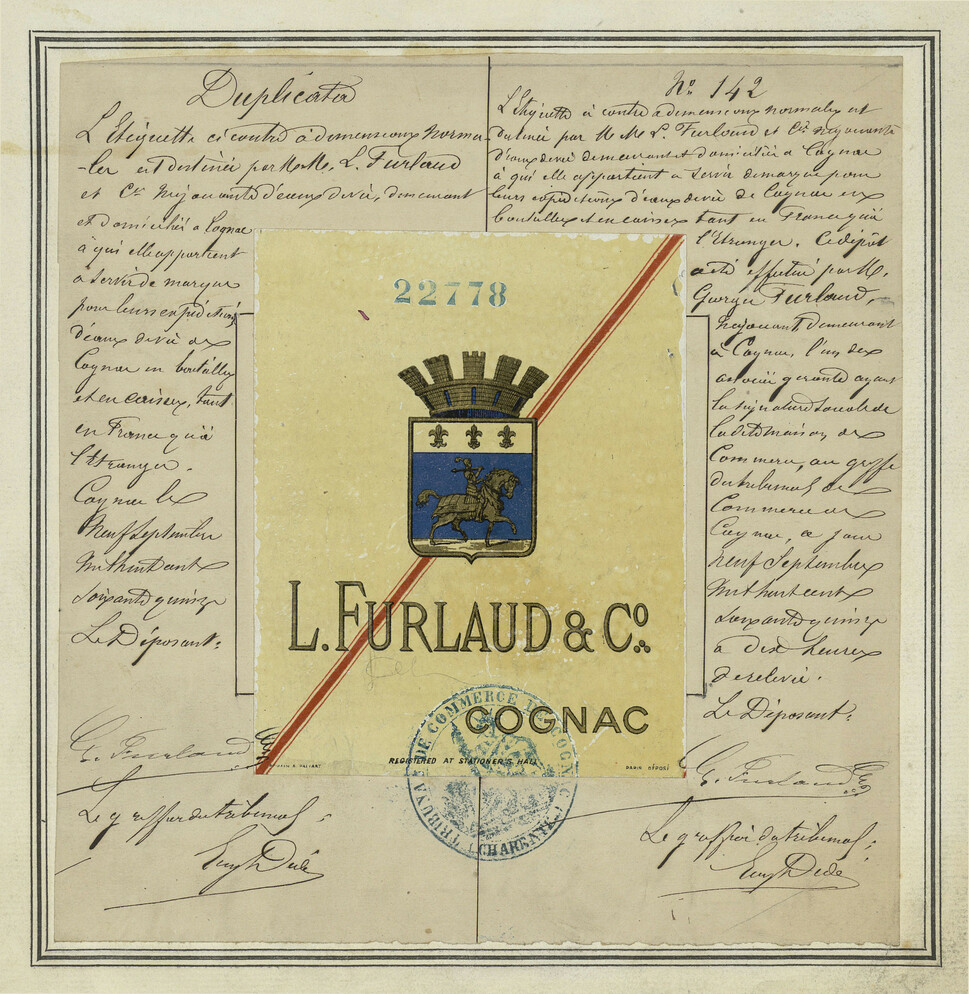 Duplicata
L'Etiquette ci contre à dimensions norma-
-les est destinée par M.M. L. Furlaud
et Cie Négociants d'eaux de vie, demeurant
et domiciliés à Cognac
à qui elle appartient
à servir de marque
pour leurs expéditions
d'eaux de vie de
Cognac en bouteilles
et en caisses, tant
en France qu'à
l'Etranger.
Cognac le
Neuf Septembre
Mil huit cent
soixante quinze
Le Déposant:
G. Furlaud
Le greffier du tribunal,
No 142
L'Etiquette ci contre à dimensions normales est
destinée par M.M. L. Furlaud et Cie Négociants
d'eaux de vie demeurant et domiciliés à Cognac
à qui elle appartient à servir de marque pour
leurs expéditions d'eaux de vie de Cognac en
bouteilles et en caisses tant en France qu'à
l'Etranger. Ce dépôt
a été effectué par M.
Georges Furlaud,
Négociant demeurant
à Cognac, l'un des
associés gérants ayant
la signature sociale de
la dite maison de
Commerce, au greffe
du tribunal de
Commerce de
Cognac, ce jour
neuf Septembre
Mil huit cent
soixante quinze
à dix heures
de relevée.
Le Déposant:
G. Furlaud
Le greffier du tribunal,
22778
L. FURLAUD & Co.
COGNAC
REGISTERED AT STATIONER'S HALL
TRIBUNAL DE COMMERCE DE COGNAC
(CHARENTE)